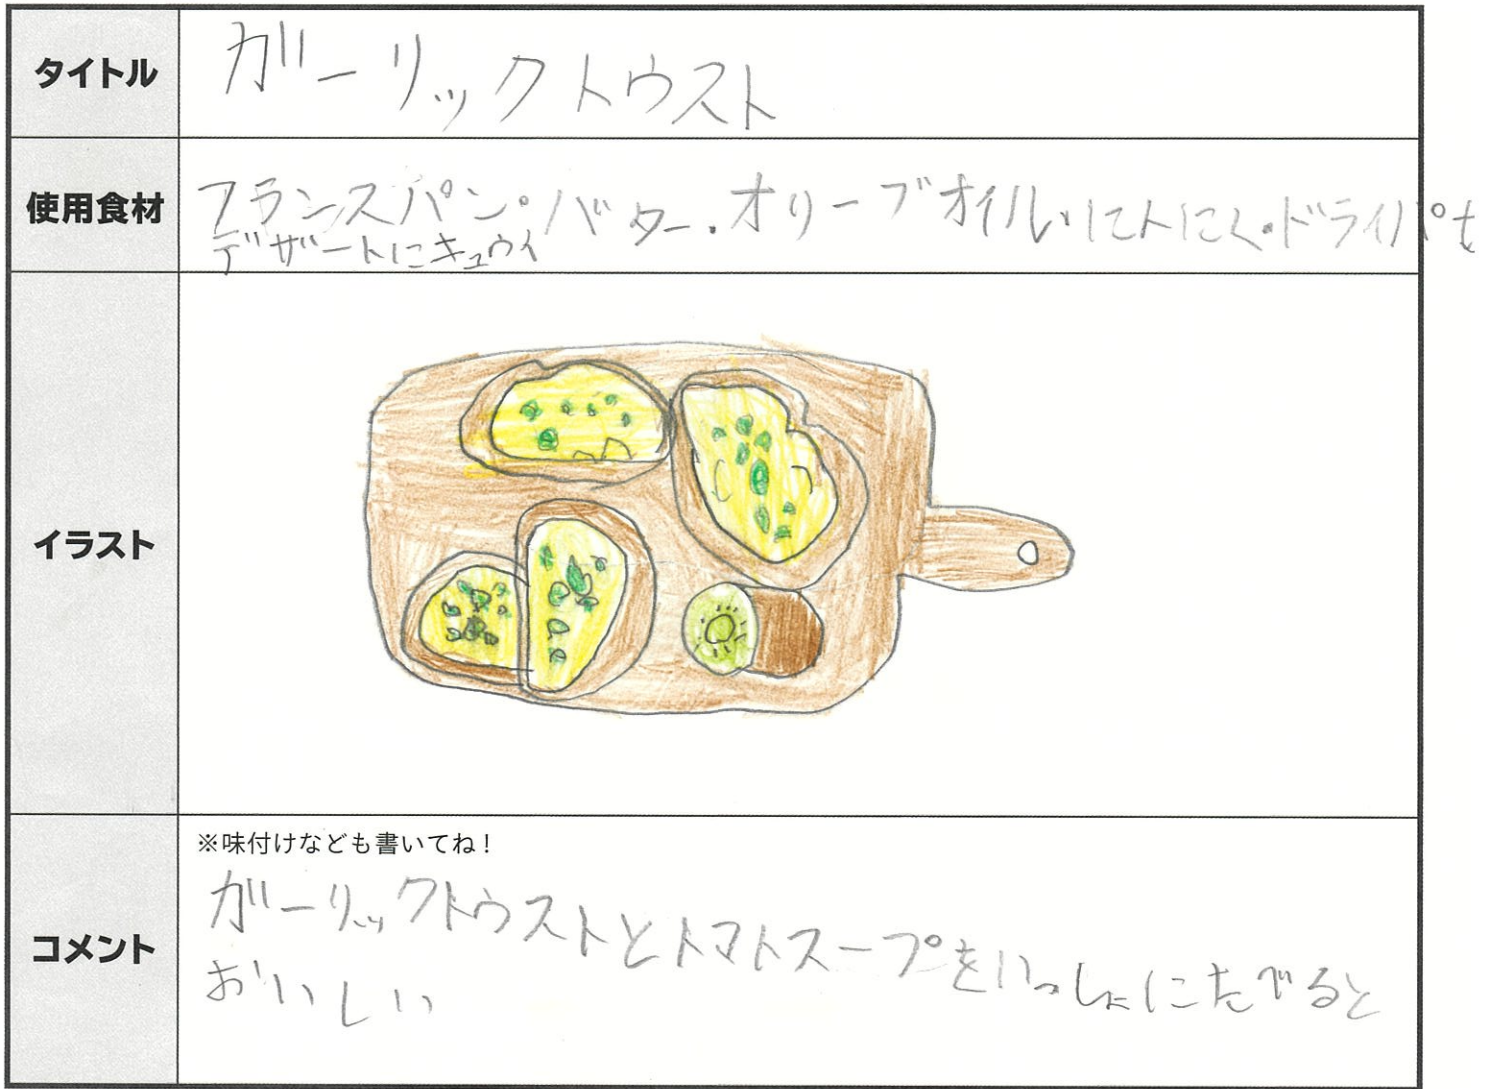 タイトル
ガーリックトウスト
使用食材
フランスパン・バター・オリーブオイル にんにく・ドライパセ
デザートにキュウイ
イラスト
コメント
※味付けなども書いてね！
ガーリックトウストとトマトスープをいっしょにたべると
おいしい